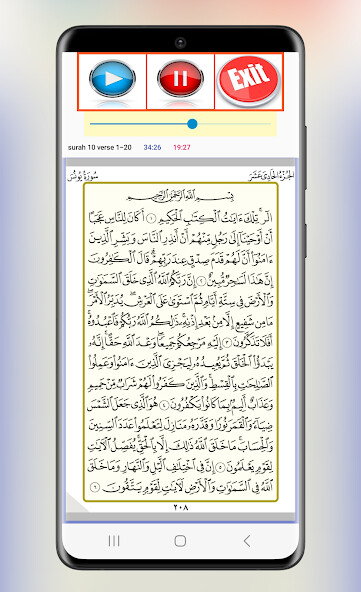 Exit
surah 10 verse 1-20 34:26 19:27
سُورَةُ يُونُسَ الجُزْءُ الحَادِي عَشَرَ
بِسْمِ اللَّهِ الرَّحْمَٰنِ الرَّحِيمِ
الٓر تِلْكَ ءَايَٰتُ ٱلْكِتَٰبِ ٱلْحَكِيمِ ١ أَكَانَ لِلنَّاسِ عَجَبًا
أَنْ أَوْحَيْنَآ إِلَىٰ رَجُلٍ مِّنْهُمْ أَنْ أَنذِرِ ٱلنَّاسَ وَبَشِّرِ ٱلَّذِينَ
ءَامَنُوٓا۟ أَنَّ لَهُمْ قَدَمَ صِدْقٍ عِندَ رَبِّهِمْ قَالَ ٱلْكَٰفِرُونَ
إِنَّ هَٰذَا لَسَٰحِرٌ مُّبِينٌ ٢ إِنَّ رَبَّكُمُ ٱللَّهُ ٱلَّذِى خَلَقَ ٱلسَّمَٰوَٰتِ
وَٱلْأَرْضَ فِى سِتَّةِ أَيَّامٍ ثُمَّ ٱسْتَوَىٰ عَلَى ٱلْعَرْشِ يُدَبِّرُ ٱلْأَمْرَ
مَا مِن شَفِيعٍ إِلَّا مِنۢ بَعْدِ إِذْنِهِۦ ذَٰلِكُمُ ٱللَّهُ رَبُّكُمْ فَٱعْبُدُوهُ
أَفَلَا تَذَكَّرُونَ ٣ إِلَيْهِ مَرْجِعُكُمْ جَمِيعًا وَعْدَ ٱللَّهِ حَقًّا إِنَّهُۥ
يَبْدَؤُا۟ ٱلْخَلْقَ ثُمَّ يُعِيدُهُۥ لِيَجْزِىَ ٱلَّذِينَ ءَامَنُوا۟ وَعَمِلُوا۟
ٱلصَّٰلِحَٰتِ بِٱلْقِسْطِ وَٱلَّذِينَ كَفَرُوا۟ لَهُمْ شَرَابٌ مِّنْ حَمِيمٍ
وَعَذَابٌ أَلِيمٌۢ بِمَا كَانُوا۟ يَكْفُرُونَ ٤ هُوَ ٱلَّذِى جَعَلَ ٱلشَّمْسَ
ضِيَآءً وَٱلْقَمَرَ نُورًا وَقَدَّرَهُۥ مَنَازِلَ لِتَعْلَمُوا۟ عَدَدَ ٱلسِّنِينَ
وَٱلْحِسَابَ مَا خَلَقَ ٱللَّهُ ذَٰلِكَ إِلَّا بِٱلْحَقِّ يُفَصِّلُ ٱلْءَايَٰتِ
لِقَوْمٍ يَعْلَمُونَ ٥ إِنَّ فِى ٱخْتِلَٰفِ ٱلَّيْلِ وَٱلنَّهَارِ وَمَا خَلَقَ
ٱللَّهُ فِى ٱلسَّمَٰوَٰتِ وَٱلْأَرْضِ لَءَايَٰتٍ لِّقَوْمٍ يَتَّقُونَ ٦
٢٠٨